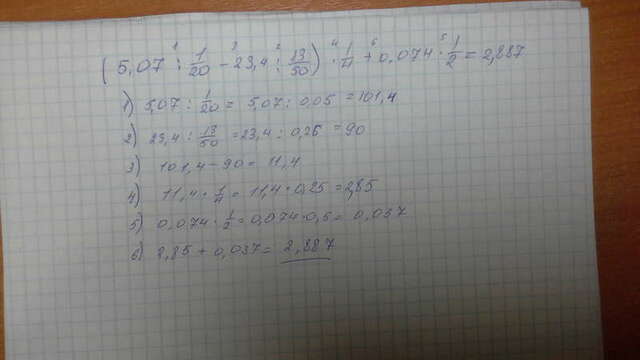 (5,07 : 1/20 - 23,4 : 13/50) · 1/4 + 0,074 · 1/2 = 2,887
1) 5,07 : 1/20 = 5,07 : 0,05 = 101,4
2) 23,4 : 13/50 = 23,4 : 0,26 = 90
3) 101,4 - 90 = 11,4
4) 11,4 · 1/4 = 11,4 · 0,25 = 2,85
5) 0,074 · 1/2 = 0,074 · 0,5 = 0,037
6) 2,85 + 0,037 = 2,887